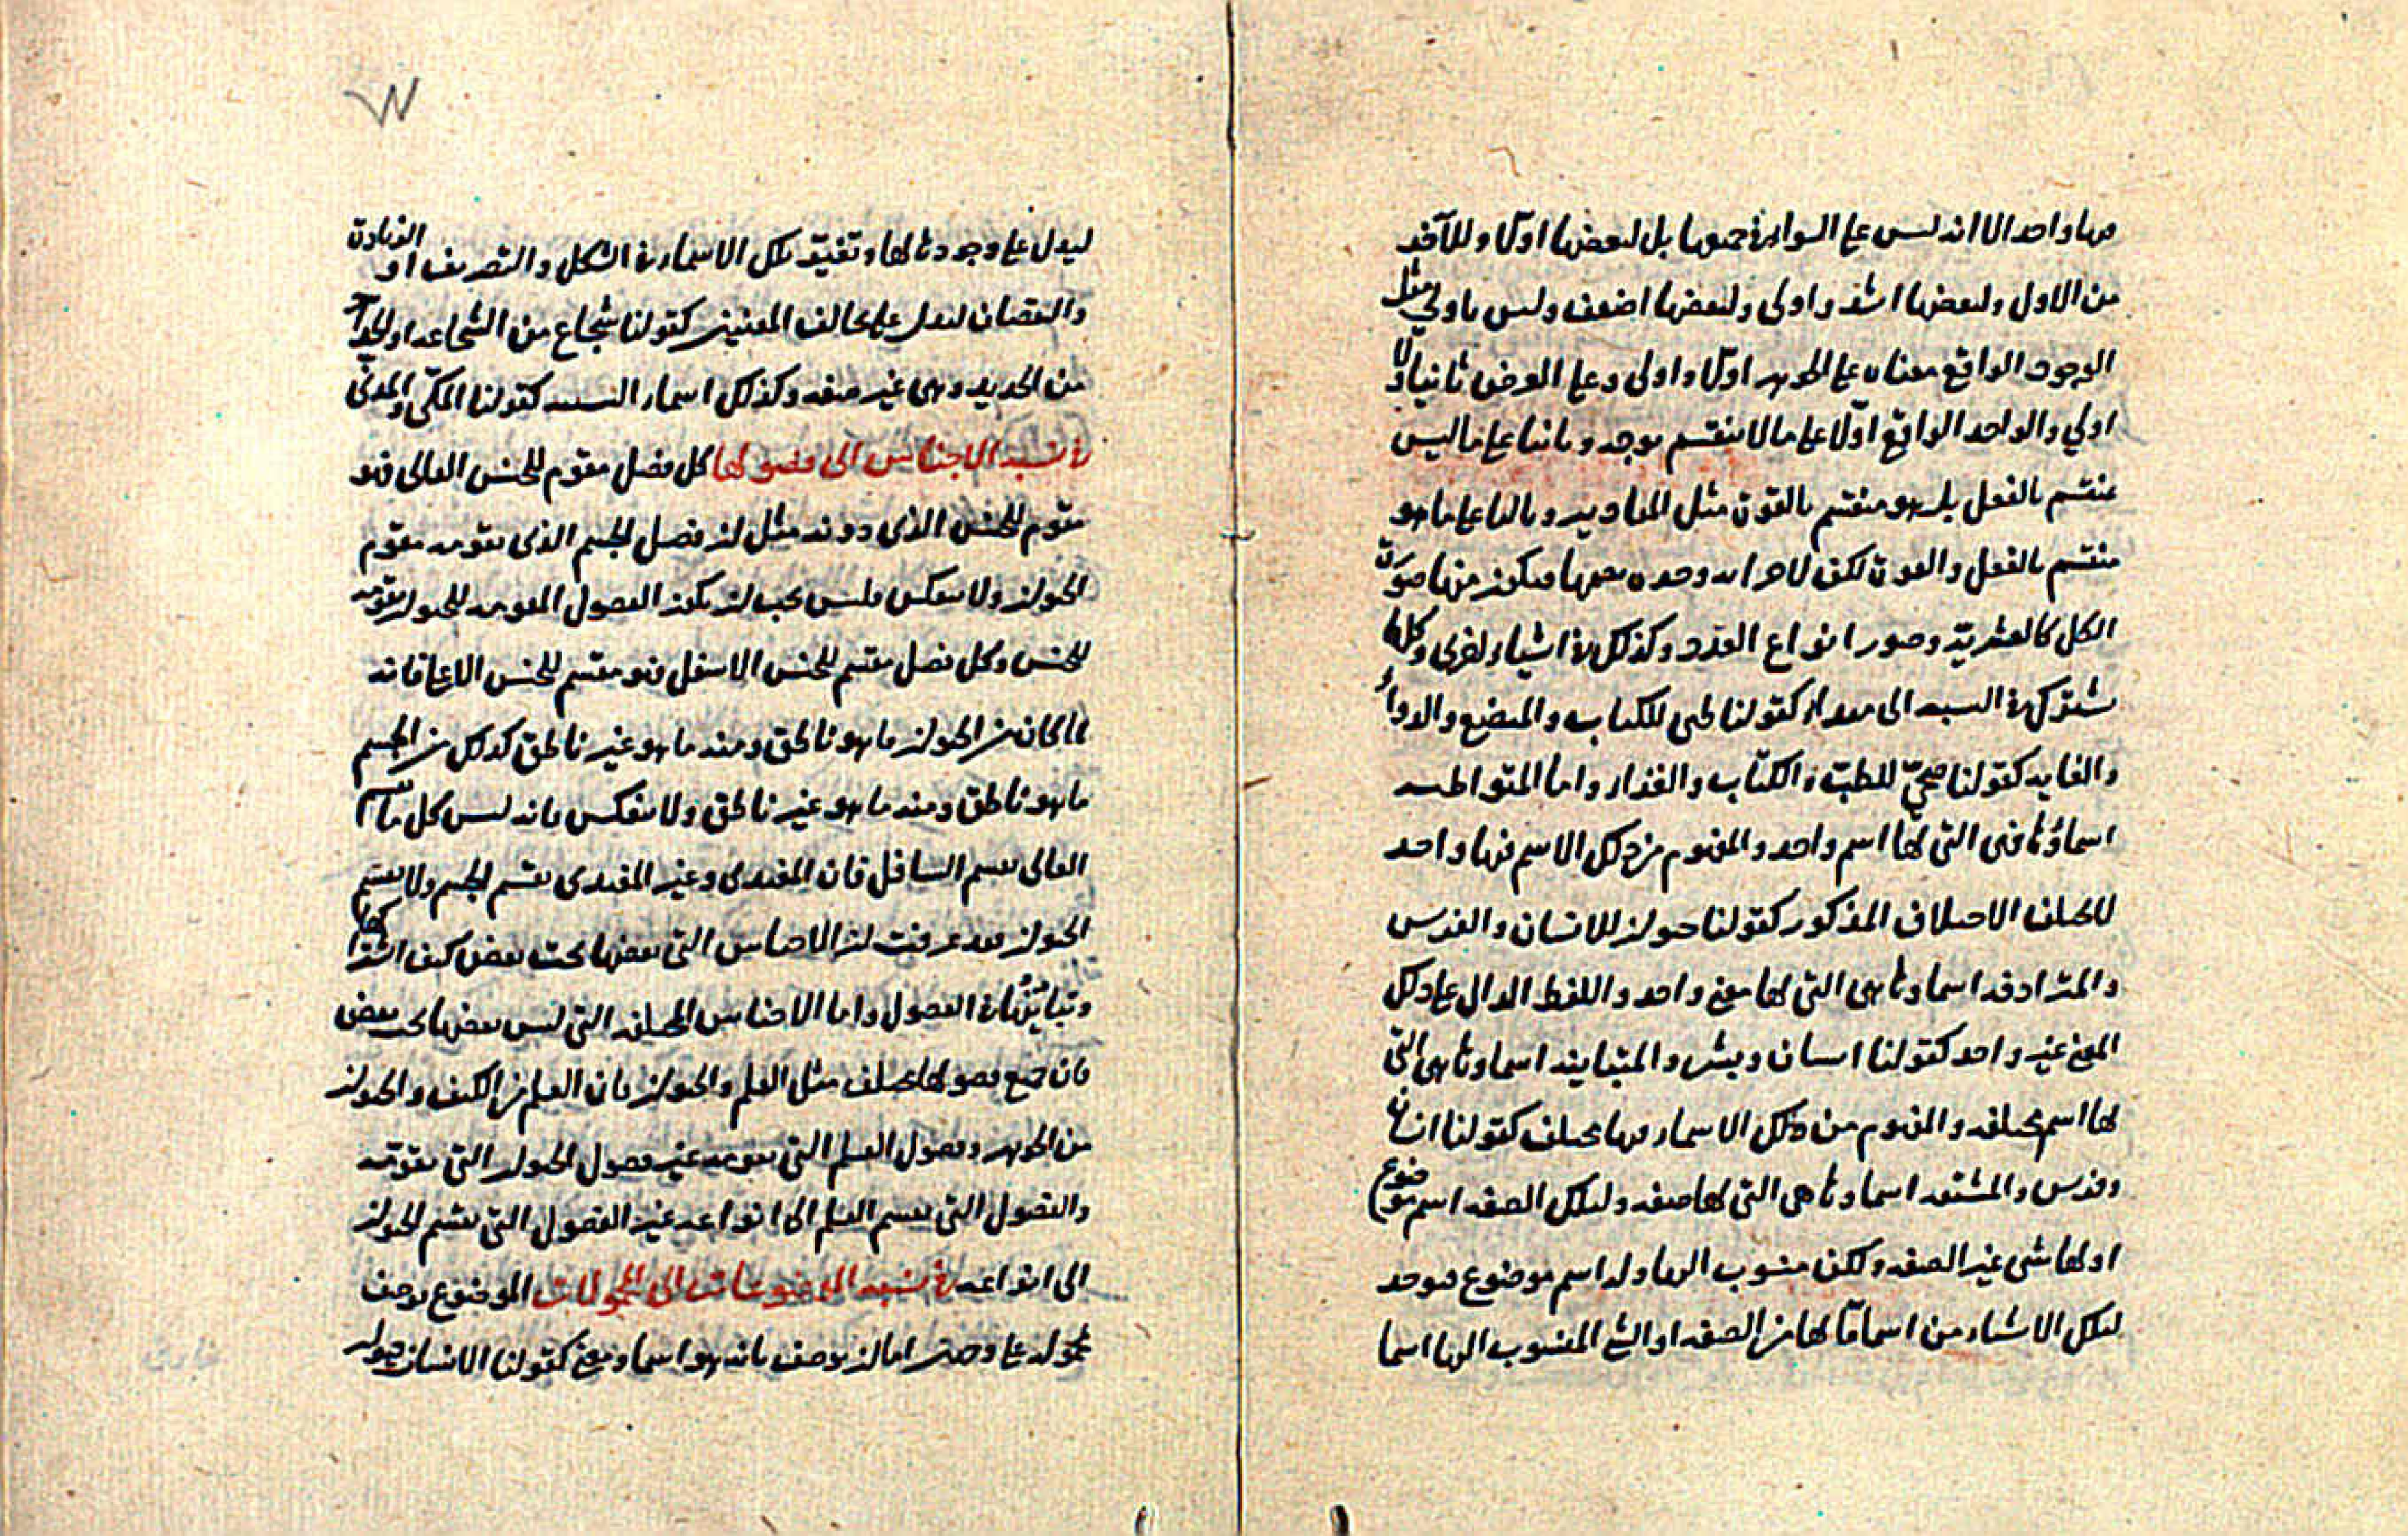 منها واحد الا انه ليس على السواء في جميعها بل لبعضها اولا وللآخر
من الاول ولبعضها اشد واولى ولبعضها اضعف وليس باولى مثل
الوجود الواقع معناه على الجوهر اولا واولى وعلى العرض ثانيا ولا
اولى والواحد الواقع اولا على ما لا ينقسم بوجه وثانيا على ما ليس
منقسم بالفعل بل هو منقسم بالقوة مثل المقادير وثالثا على ما هو
منقسم بالفعل والقوة لكن لاجزائه وحدة تعمها فيكون منها صورة
الكل كالعشرية وصور انواع العدد وكذلك في اشياء اخرى وكلها
تشترك في النسبة الى مبداء كقولنا طبي للكتاب والمبضع والدواء
والغاية كقولنا صحي للطب والكتاب والغذاء واما المتواطية
اسماؤها فهي التي لها اسم واحد والمفهوم من ذلك الاسم فيها واحد
لا يختلف الاختلاف المذكور كقولنا حيوان للانسان والفرس
والمترادفة اسماوها هي التي لها معنى واحد واللفظ الدال على ذلك
المعنى غير واحد كقولنا انسان وبشر والمتباينة اسماوها هي التي
لها اسم مختلفة والمفهوم من ذلك الاسماء فيها مختلف كقولنا انسان
وفرس والمشتقة اسماوها هي التي لها صفة ولتلك الصفة اسم موضوع
او لها شى غير الصفة ولكن منسوب اليها وله اسم موضوع فيوخذ
لتلك الاشياء من اسماء ما لها من الصفة او الشى المنسوب اليها اسما
ليدل على وجودها لها وتغير تلك الاسماء في الشكل والتصريف او الزيادة
والنقصان ليدل على تخالف المعنيين كقولنا شجاع من الشجاعة او الحداد
من الحديد وهى غير صفة وكذلك اسماء النسبة كقولنا المكي والمدني
في نسبة الاجناس الى فصولها كل فصل مقوم للجنس العالى فهو
مقوم للجنس الذى دونه مثل ان فصل الجسم الذى يقومه مقوم
الحيوان ولا ينعكس فليس يجب ان يكون الفصول المقومة للحيوان مقومة
للجنس وكل فصل مقسم للجنس الاسفل فهو مقسم للجنس الاعلى فانه
لما كان من الحيوان ما هو ناطق ومنه ما هو غير ناطق كذلك من الجسم
ما هو ناطق ومنه ما هو غير ناطق ولا ينعكس فانه ليس كل ما يقسم
العالى يقسم السافل فان المغتذى وغير المغتذى يقسم الجسم ولا يقسم
الحيوان فقد عرفت ان الاجناس التي بعضها تحت بعض كيف اشتراكها
وتباينها في الفصول واما الاجناس المختلفة التي ليس بعضها تحت بعض
فان جميع فصولها مختلف مثل العلم والحيوان فان العلم من الكيف والحيوان
من الجوهر وفصول العلم التي يقومه غير فصول الحيوان التي يقومه
والفصول التي يقسم العلم الى انواعه غير الفصول التي يقسم الحيوان
الى انواعه في نسبة الموضوعات الى المحمولات الموضوع يوصف
بمحموله على وجهين اما ان يوصف بانه هو اسما ومعنى كقولنا الانسان حيوان